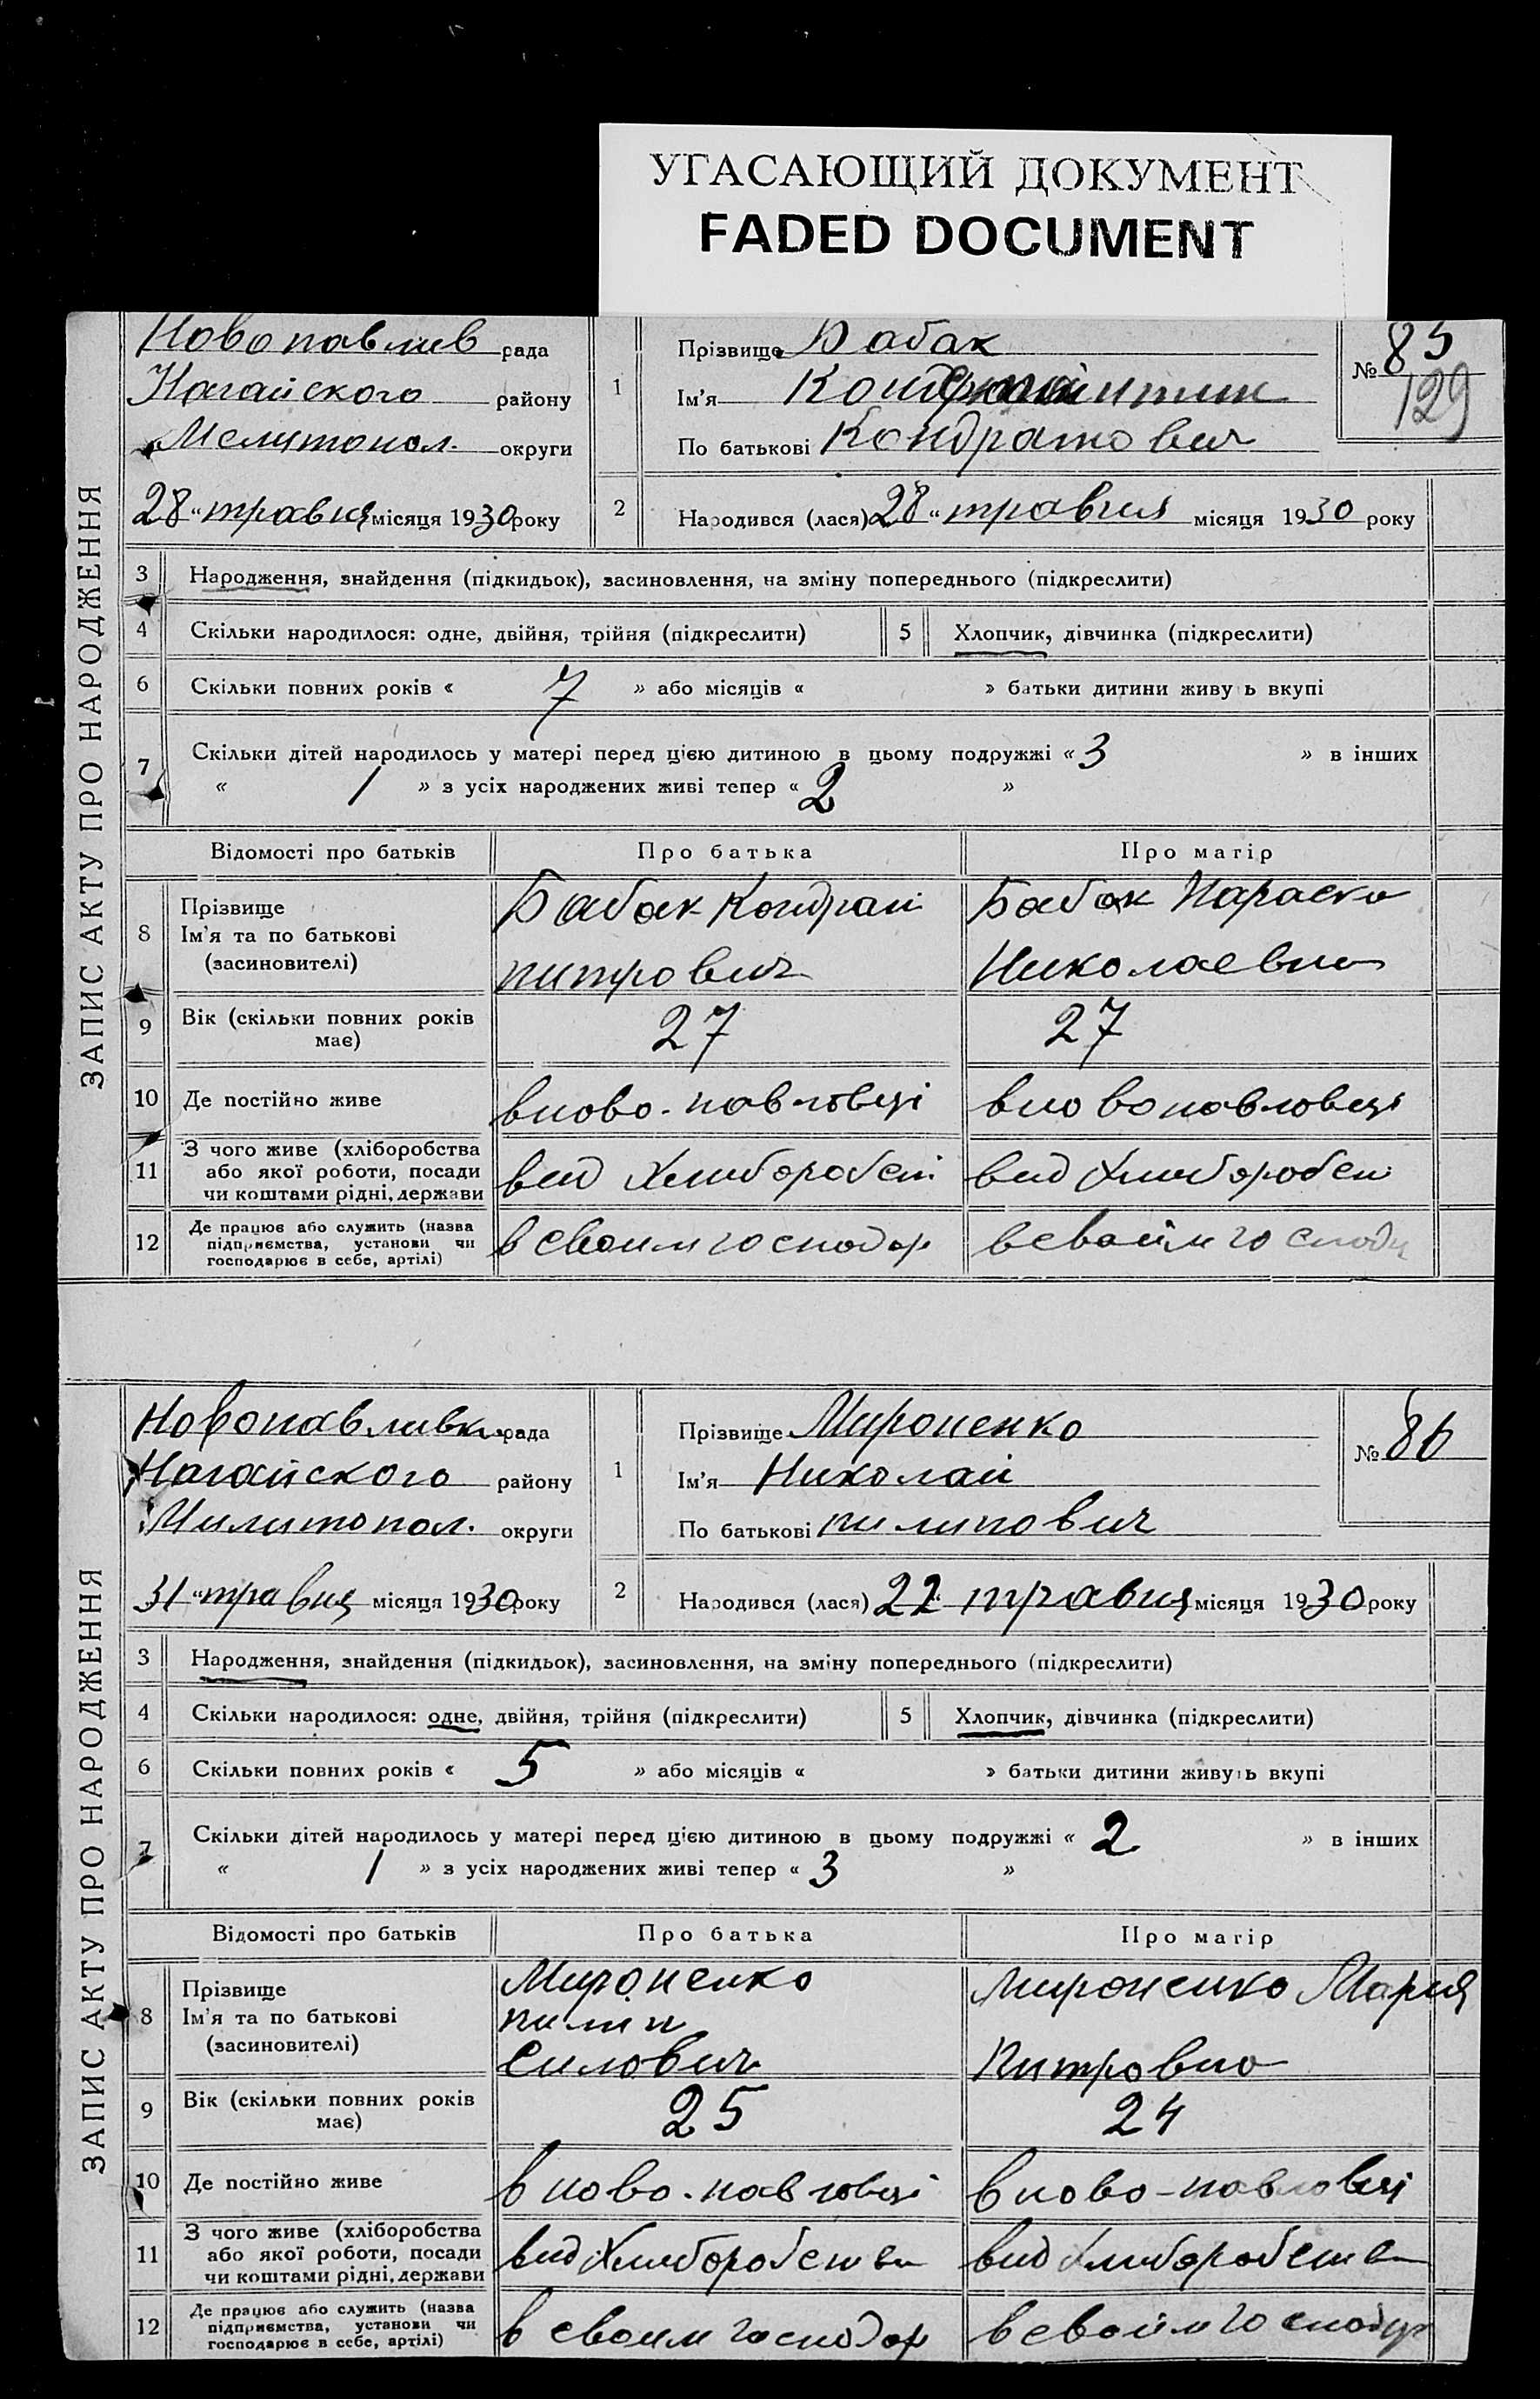 УГАСАЮЩИЙ ДОКУМЕНТ
FADED DOCUMENT
ЗАПИС АКТУ ПРО НАРОДЖЕННЯ
Новопавлив рада
Нагайского району
Мелитопол. округи
28 "травня місяця 1930 року
1 Прізвище Бабак
Ім'я
По батькові Кондратович
№ 85
129
2 Народився (лася) 28 "травня місяця 1930 року
3 Народження, знайдення (підкидьок), засиновлення, на зміну попереднього (підкреслити)
4 Скільки народилося: одне, двійня, трійня (підкреслити) 5 Хлопчик, дівчинка (підкреслити)
6 Скільки повних років « 7 » або місяців « » батьки дитини живу ь вкупі
7 Скільки дітей народилось у матері перед цією дитиною в цьому подружжі « 3 » в інших
« 1 » з усіх народжених живі тепер « 2 »
Відомості про батьків Про батька Про матір
8 Прізвище Ім'я та по батькові (засиновителі)
Бабак Кондрат
питрович
Бабак Параска
Николаевна
9 Вік (скільки повних років має) 27 27
10 Де постійно живе вново-павловці вновопавловці
11 З чого живе (хліборобства або якої роботи, посади чи коштами рідні, держави
вид Хлиборобст вид Хлиборобст
12 Де працює або служить (назва підприємства, установи чи господарює в себе, артілі)
в своим господар всвоім господ
ЗАПИС АКТУ ПРО НАРОДЖЕННЯ
Новопавливка рада
Нагайского району
Милитопол. округи
31 "травня місяця 1930 року
1 Прізвище Мироненко
Ім'я Николай
По батькові пилипович
№ 86
2 Народився (лася) 22 " травня місяця 1930 року
3 Народження, знайдення (підкидьок), засиновлення, на зміну попереднього (підкреслити)
4 Скільки народилося: одне, двійня, трійня (підкреслити) 5 Хлопчик, дівчинка (підкреслити)
6 Скільки повних років « 5 » або місяців « » батьки дитини живуть вкупі
7 Скільки дітей народилось у матері перед цією дитиною в цьому подружжі « 2 » в інших
« 1 » з усіх народжених живі тепер « 3 »
Відомості про батьків Про батька Про матір
8 Прізвище Ім'я та по батькові (засиновителі)
Мироненко
пилип
Силович
Мироненко Мария
Питровна
9 Вік (скільки повних років має) 25 24
10 Де постійно живе в ново-павловці в ново-павловці
11 З чого живе (хліборобства або якої роботи, посади чи коштами рідні, держави
вид Хлиборобства вид хлиборобства
12 Де працює або служить (назва підприємства, установи чи господарює в себе, артілі)
в своим господар в своім господар